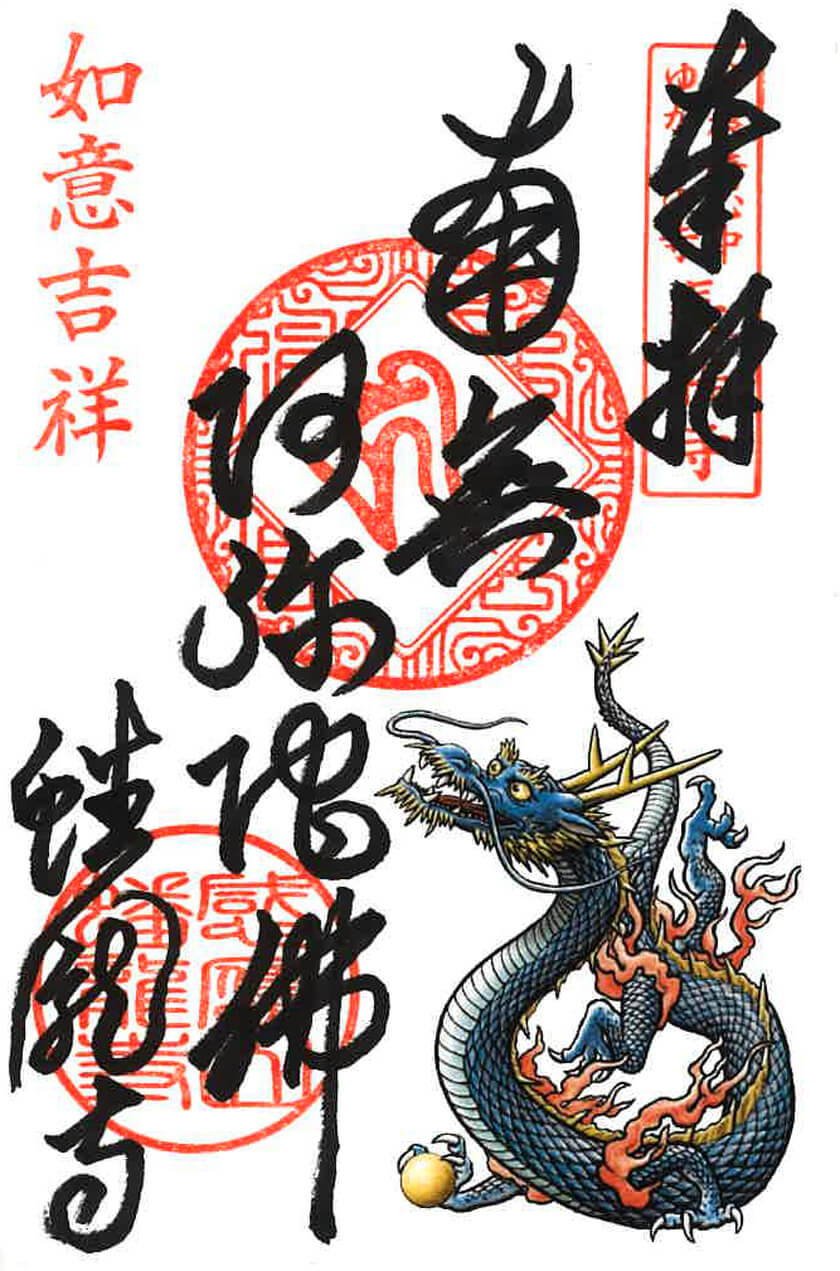 奉拝
南無
阿弥陀佛
蟠龍寺
如意吉祥